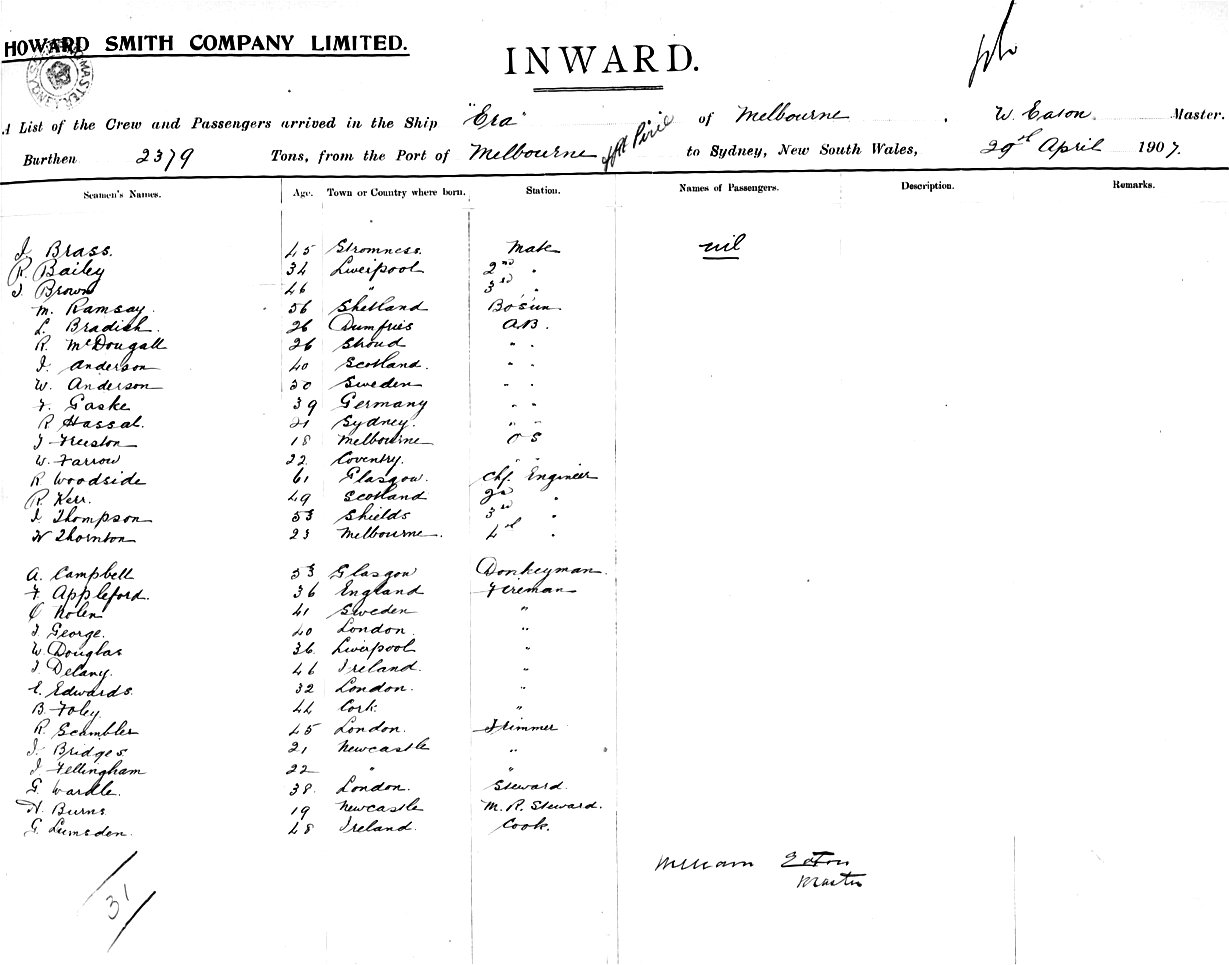 HOWARD SMITH COMPANY LIMITED.
INWARD.
A List of the Crew and Passengers arrived in the Ship "Era" of Melbourne, W. Eaton. Master.
Burthen 2379 Tons, from the Port of Melbourne Pirie to Sydney, New South Wales, 29th April 1907.
Seamen's Names. Age. Town or Country where born. Station. Names of Passengers. Description. Remarks.
J. Brass. 45 Stromness. Mate nil
R. Bailey 34 Liverpool 2nd "
J. Brown 46 " 3rd "
M. Ramsay. 56 Shetland Bosun
L. Bradish. 26 Dumfries AB.
R. McDougall 26 Stroud " "
J. Anderson 40 Scotland. " "
W. Anderson 30 Sweden " "
F. Gaske 39 Germany " "
R Hassal. 21 Sydney. " "
J Freeston 18 Melbourne OS
W. Farrow 22 Coventry. " "
R Woodside 61 Glasgow. Chf. Engineer
R. Kerr. 49 Scotland 2nd "
J. Thompson 53 Shields 3rd "
W Thornton 23 Melbourne. 4th "
A. Campbell 53 Glasgow Donkeyman.
F. Appleford. 36 England Fireman
O Nolen 41 Sweden "
J. George. 40 London "
W. Douglas 36 Liverpool "
J. Delany. 46 Ireland. "
E. Edwards. 32 London. "
B. Foley. 44 Cork "
R. Scambler 45 London. Trimmer
J. Bridges 21 Newcastle "
J. Fellingham 22 " "
G. Wardle. 38 London. Steward.
H. Burns 19 Newcastle M. R. Steward.
G. Lumsden. 48 Ireland. Cook.
William Eaton
Master
31